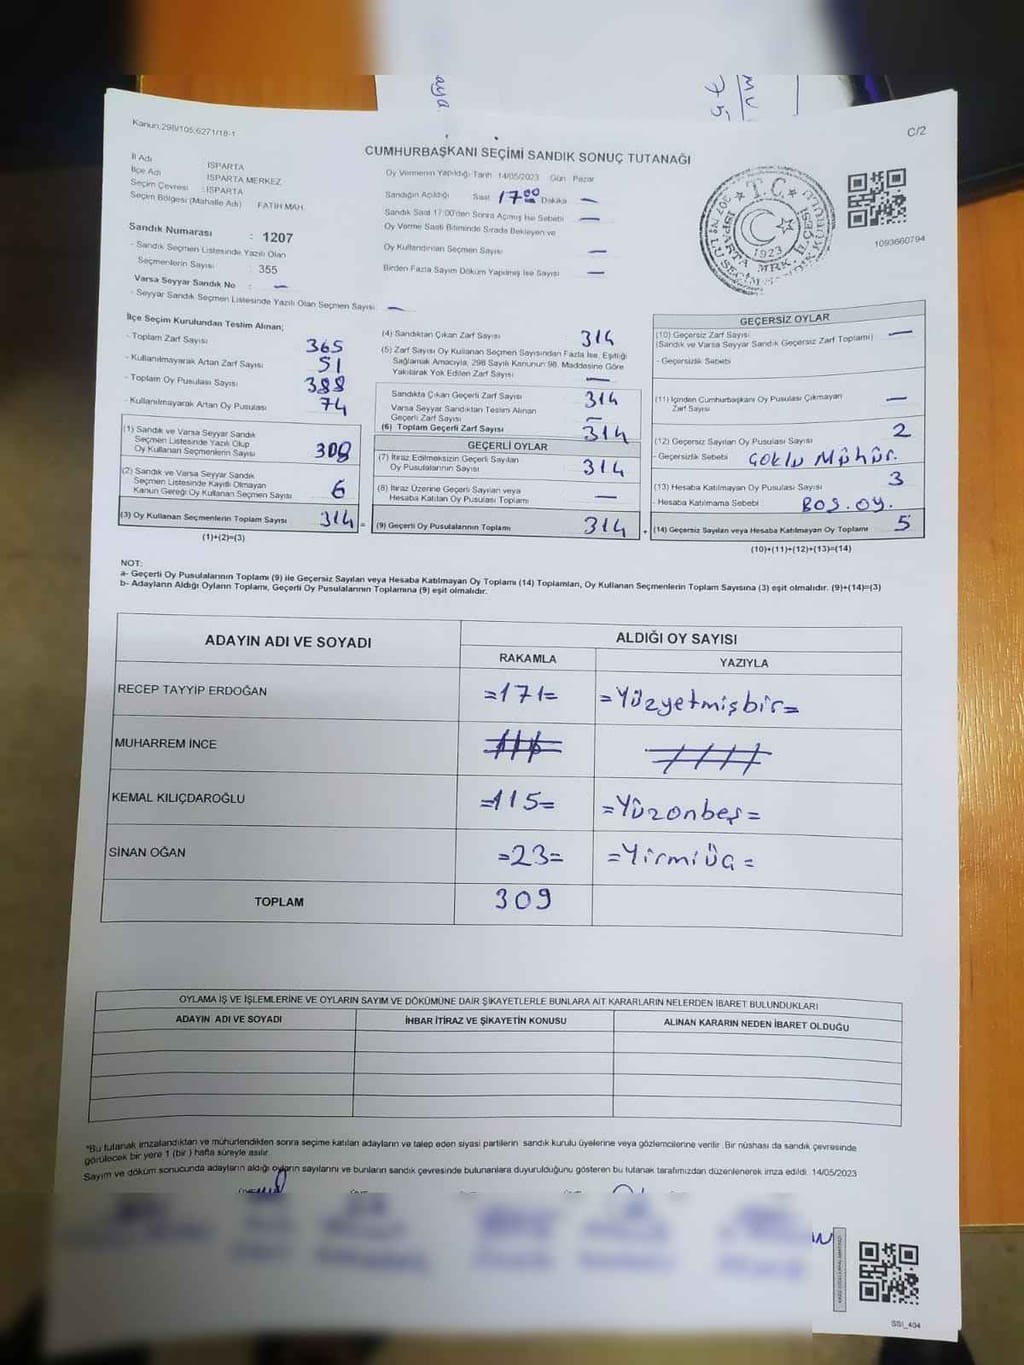 aya
MV
75
Kanun:298/105;6271/18-1
C/2
CUMHURBAŞKANI SEÇİMİ SANDIK SONUÇ TUTANAĞI
İl Adı ISPARTA
İlçe Adı ISPARTA MERKEZ
Seçim Çevresi : ISPARTA
Seçim Bölgesi (Mahalle Adı) FATİH MAH.
Sandık Numarası : 1207
- Sandık Seçmen Listesinde Yazılı Olan
Seçmenlerin Sayısı : 355
Varsa Seyyar Sandık No : —
- Seyyar Sandık Seçmen Listesinde Yazılı Olan Seçmen Sayısı —
Oy Vermenin Yapıldığı Tarih 14/05/2023 Gün Pazar
Sandığın Açıldığı Saat 17:00 Dakika —
Sandık Saat 17:00'den Sonra Açılmış İse Sebebi —
Oy Verme Saati Bitiminde Sırada Bekleyen ve
Oy Kullandırılan Seçmen Sayısı —
Birden Fazla Sayım Döküm Yapılmış İse Sayısı —
T.C.
ISPARTA MRK. İLÇESİ
1923
1093660794
İlçe Seçim Kurulundan Teslim Alınan;
- Toplam Zarf Sayısı 365
- Kullanılmayarak Artan Zarf Sayısı 51
- Toplam Oy Pusulası Sayısı 388
- Kullanılmayarak Artan Oy Pusulası 74
(1) Sandık ve Varsa Seyyar Sandık
Seçmen Listesinde Yazılı Olup
Oy Kullanan Seçmenlerin Sayısı 308
(2) Sandık ve Varsa Seyyar Sandık
Seçmen Listesinde Kayıtlı Olmayan
Kanun Gereği Oy Kullanan Seçmen Sayısı 6
(3) Oy Kullanan Seçmenlerin Toplam Sayısı 314 =
(1)+(2)=(3)
(4) Sandıktan Çıkan Zarf Sayısı 314
(5) Zarf Sayısı Oy Kullanan Seçmen Sayısından Fazla İse, Eşitliği
Sağlamak Amacıyla, 298 Sayılı Kanunun 98. Maddesine Göre
Yakılarak Yok Edilen Zarf Sayısı —
Sandıkta Çıkan Geçerli Zarf Sayısı 314
Varsa Seyyar Sandıktan Teslim Alınan
Geçerli Zarf Sayısı —
(6) Toplam Geçerli Zarf Sayısı 314
GEÇERLİ OYLAR
(7) İtiraz Edilmeksizin Geçerli Sayılan
Oy Pusulalarının Sayısı 314
(8) İtiraz Üzerine Geçerli Sayılan veya
Hesaba Katılan Oy Pusulası Toplamı —
(9) Geçerli Oy Pusulalarının Toplamı 314 +
GEÇERSİZ OYLAR
(10) Geçersiz Zarf Sayısı —
(Sandık ve Varsa Seyyar Sandık Geçersiz Zarf Toplamı)
- Geçersizlik Sebebi
(11) İçinden Cumhurbaşkanı Oy Pusulası Çıkmayan
Zarf Sayısı —
(12) Geçersiz Sayılan Oy Pusulası Sayısı 2
- Geçersizlik Sebebi Çoklu Mühür.
(13) Hesaba Katılmayan Oy Pusulası Sayısı 3
- Hesaba Katılmama Sebebi Boş.oy.
(14) Geçersiz Sayılan veya Hesaba Katılmayan Oy Toplamı 5
(10)+(11)+(12)+(13)=(14)
NOT:
a- Geçerli Oy Pusulalarının Toplamı (9) ile Geçersiz Sayılan veya Hesaba Katılmayan Oy Toplamı (14) Toplamları, Oy Kullanan Seçmenlerin Toplam Sayısına (3) eşit olmalıdır. (9)+(14)=(3)
b- Adayların Aldığı Oyların Toplamı, Geçerli Oy Pusulalarının Toplamına (9) eşit olmalıdır.
ADAYIN ADI VE SOYADI
ALDIĞI OY SAYISI
RAKAMLA YAZIYLA
RECEP TAYYİP ERDOĞAN =171= =Yüzyetmişbir=
MUHARREM İNCE
KEMAL KILIÇDAROĞLU =115= =Yüzonbeş=
SİNAN OĞAN =23= =Yirmiüç=
TOPLAM 309
OYLAMA İŞ VE İŞLEMLERİNE VE OYLARIN SAYIM VE DÖKÜMÜNE DAİR ŞİKAYETLERLE BUNLARA AİT KARARLARIN NELERDEN İBARET BULUNDUKLARI
ADAYIN ADI VE SOYADI İHBAR İTİRAZ VE ŞİKAYETİN KONUSU ALINAN KARARIN NEDEN İBARET OLDUĞU
*Bu tutanak imzalandıktan ve mühürlendikten sonra seçime katılan adayların ve talep eden siyasi partilerin sandık kurulu üyelerine veya gözlemcilerine verilir. Bir nüshası da sandık çevresinde
görülecek bir yere 1 (bir) hafta süreyle asılır.
Sayım ve döküm sonucunda adayların aldığı oyların sayılarını ve bunların sandık çevresinde bulunanlara duyurulduğunu gösteren bu tutanak tarafımızdan düzenlenerek imza edildi. 14/05/2023
SSI_404